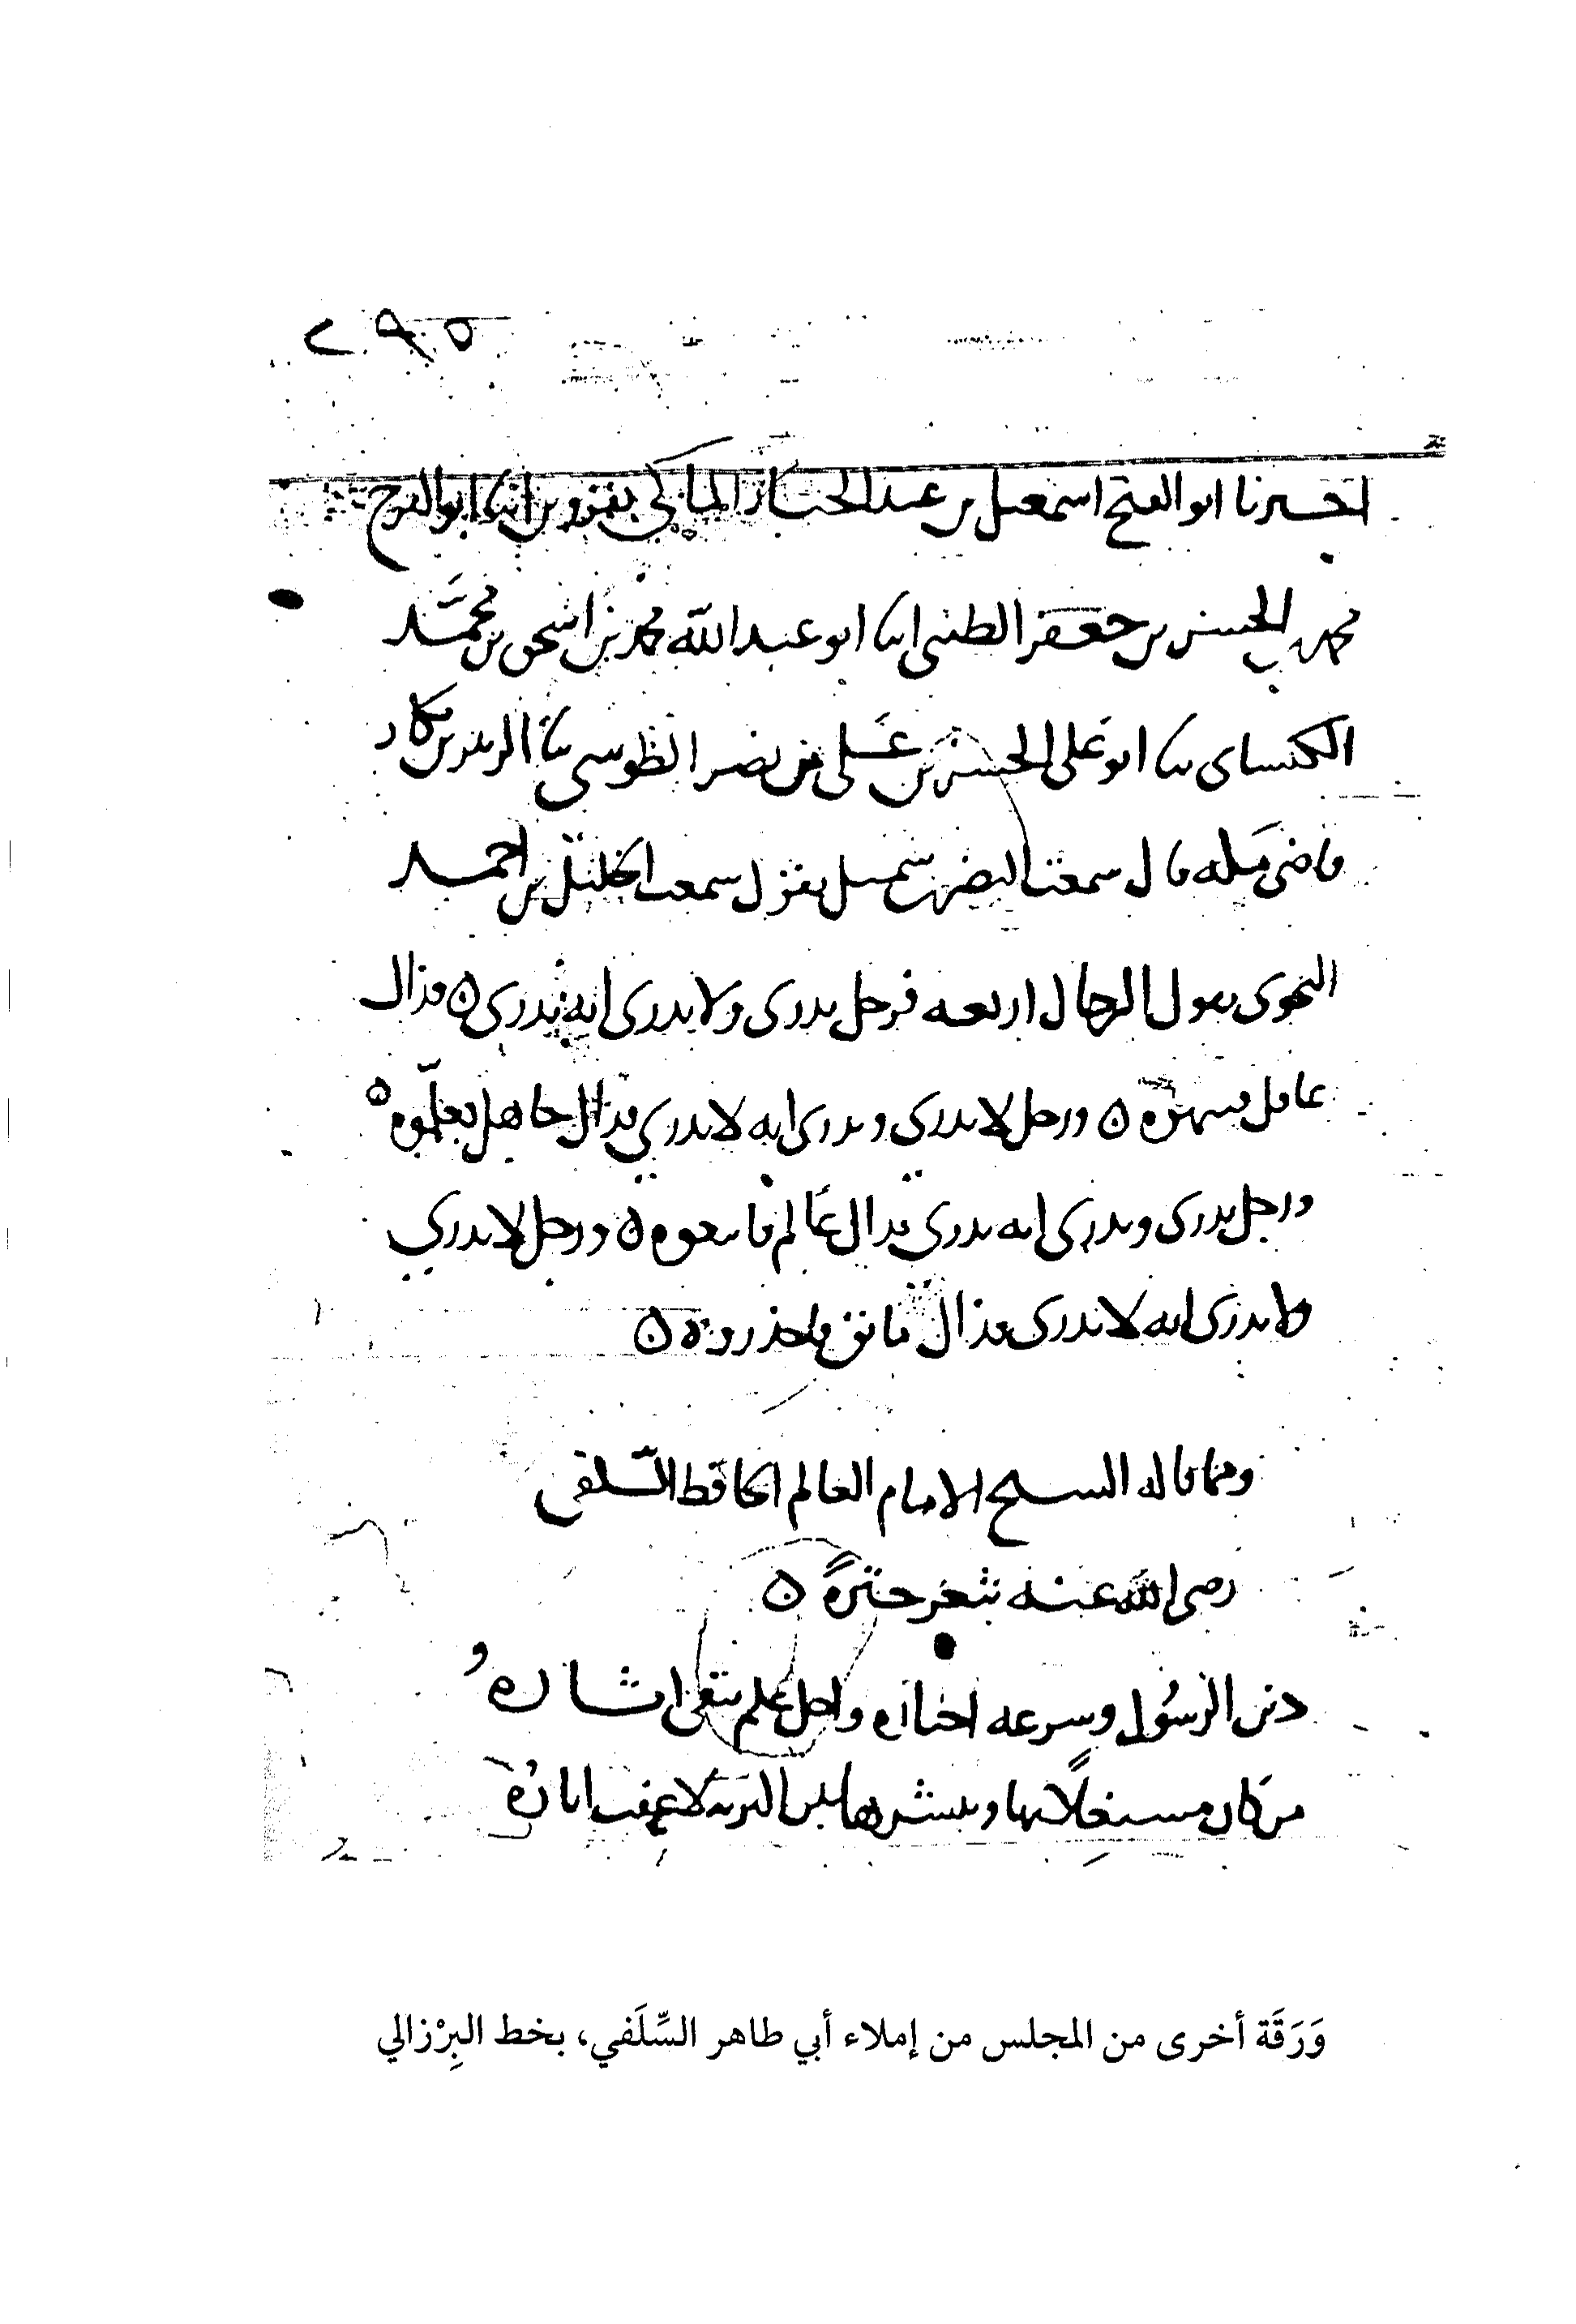 ٢٩٥
اخبرنا ابو الفتح اسمعيل بن عبد الجبار الماكي بقزوين انبا ابو الفرج
محمد بن الحسن بن جعفر الطيبي انبا ابو عبد الله محمد بن اسحق بن محمد
الكيساي ثنا ابو علي الحسن بن علي بن نصر الطوسي ثنا الزبير بن بكار
قاضي مكة قال سمعت النضر بن شميل يقول سمعت الخليل بن احمد
النحوي يقول الرجال اربعة فرجل يدري ولا يدري انه يدري ه فذاك
غافل فنبهوه ه ورجل لا يدري ويدري انه لا يدري فذاك جاهل فعلموه ه
ورجل يدري ويدري انه يدري فذاك عالم فاتبعوه ه ورجل لا يدري
ولا يدري انه لا يدري فذاك مائق فاحذروه ه
ومما قاله الشيخ الامام العالم الحافظ السلفي
رضي الله عنه بثغر جنزة ه
دين الرسول وشرعه اخباره واجل علم يقتفى اثاره
من كان مشتغلا بها وبنشرها بين البرية لا عفت اثاره
وَرَقَة أخرى من المجلس من إملاء أبي طاهر السِّلَفي، بخط البِرْزالي